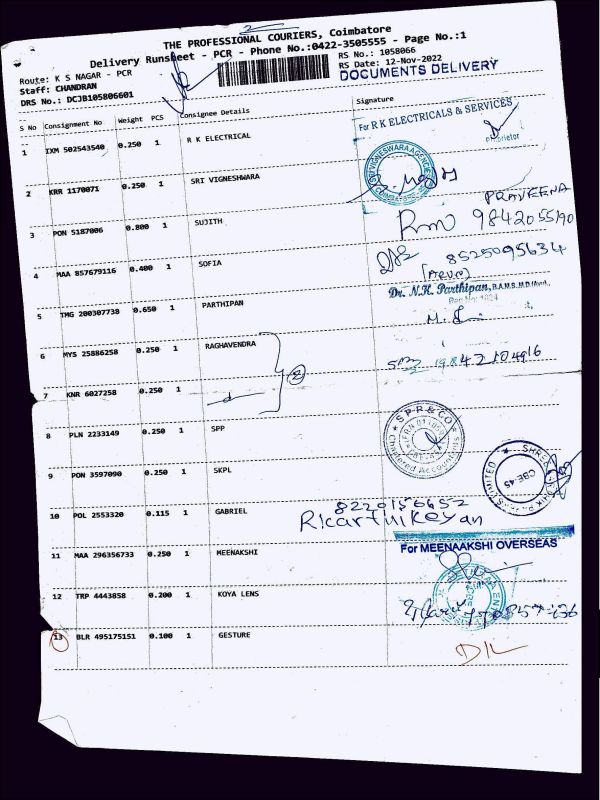 THE PROFESSIONAL COURIERS, Coimbatore
Delivery Runsheet - PCR - Phone No.:0422-3505555 - Page No.:1
Route: K S NAGAR - PCR
RS No.: 1058066
Staff: CHANDRAN
RS Date: 12-Nov-2022
DRS No.: DCJB105806601
DOCUMENTS DELIVERY
S No Consignment No Weight PCS Consignee Details Signature
1 IXM 502543540 0.250 1 R K ELECTRICAL
For R K ELECTRICALS & SERVICES
Proprietor
2 KRR 1170071 0.250 1 SRI VIGNESHWARA
SRI VIGNESWARA AGENCIES
3 PON 5187006 0.800 1 SUJITH
PRAVEENA
9842055190
4 MAA 857679116 0.400 1 SOFIA
8525095634
5 TMG 200307738 0.650 1 PARTHIPAN
Dr. N.H. Parthipan, B.A.M.S.
6 MYS 25886258 0.250 1 RAGHAVENDRA
2
7 KNR 6027258 0.250 1
8 PLN 2233149 0.250 1 SPP
SPR & CO
Chartered Accountants
9 PON 3597090 0.250 1 SKPL
CBE-45
LIMITED
10 POL 2553320 0.115 1 GABRIEL
8220156652
11 MAA 296356733 0.250 1 MEENAKSHI
For MEENAAKSHI OVERSEAS
12 TRP 4443858 0.200 1 KOYA LENS
13 BLR 495175151 0.100 1 GESTURE